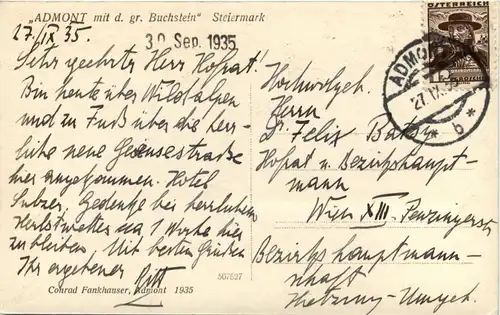 „ADMONT mit d. gr. Buchstein" Steiermark
27/IX 35.
30. Sep. 1935
Sehr geehrter Herr Hofrat!
Bin heute über Wildalpen
und zu Fuß über die herr-
liche neue Gesäusestraße
hier angekommen. Hotel
Sulzer. Gedenke bei herrlichem
Herbstwetter ca 1 Woche hier
zu bleiben. Mit besten Grüßen
Ihr ergebener
507527
Conrad Fankhauser, Admont 1935
ÖSTERREICH
ADMONT
27.IX.35
* b *
Hochwolgeb.
Herrn
Dr. Felix
Hofrat u. Bezirkshaupt-
mann
Wien XIII. Penzingerstr
Bezirkshauptmann-
schaft
Hietzing-Umgeb.